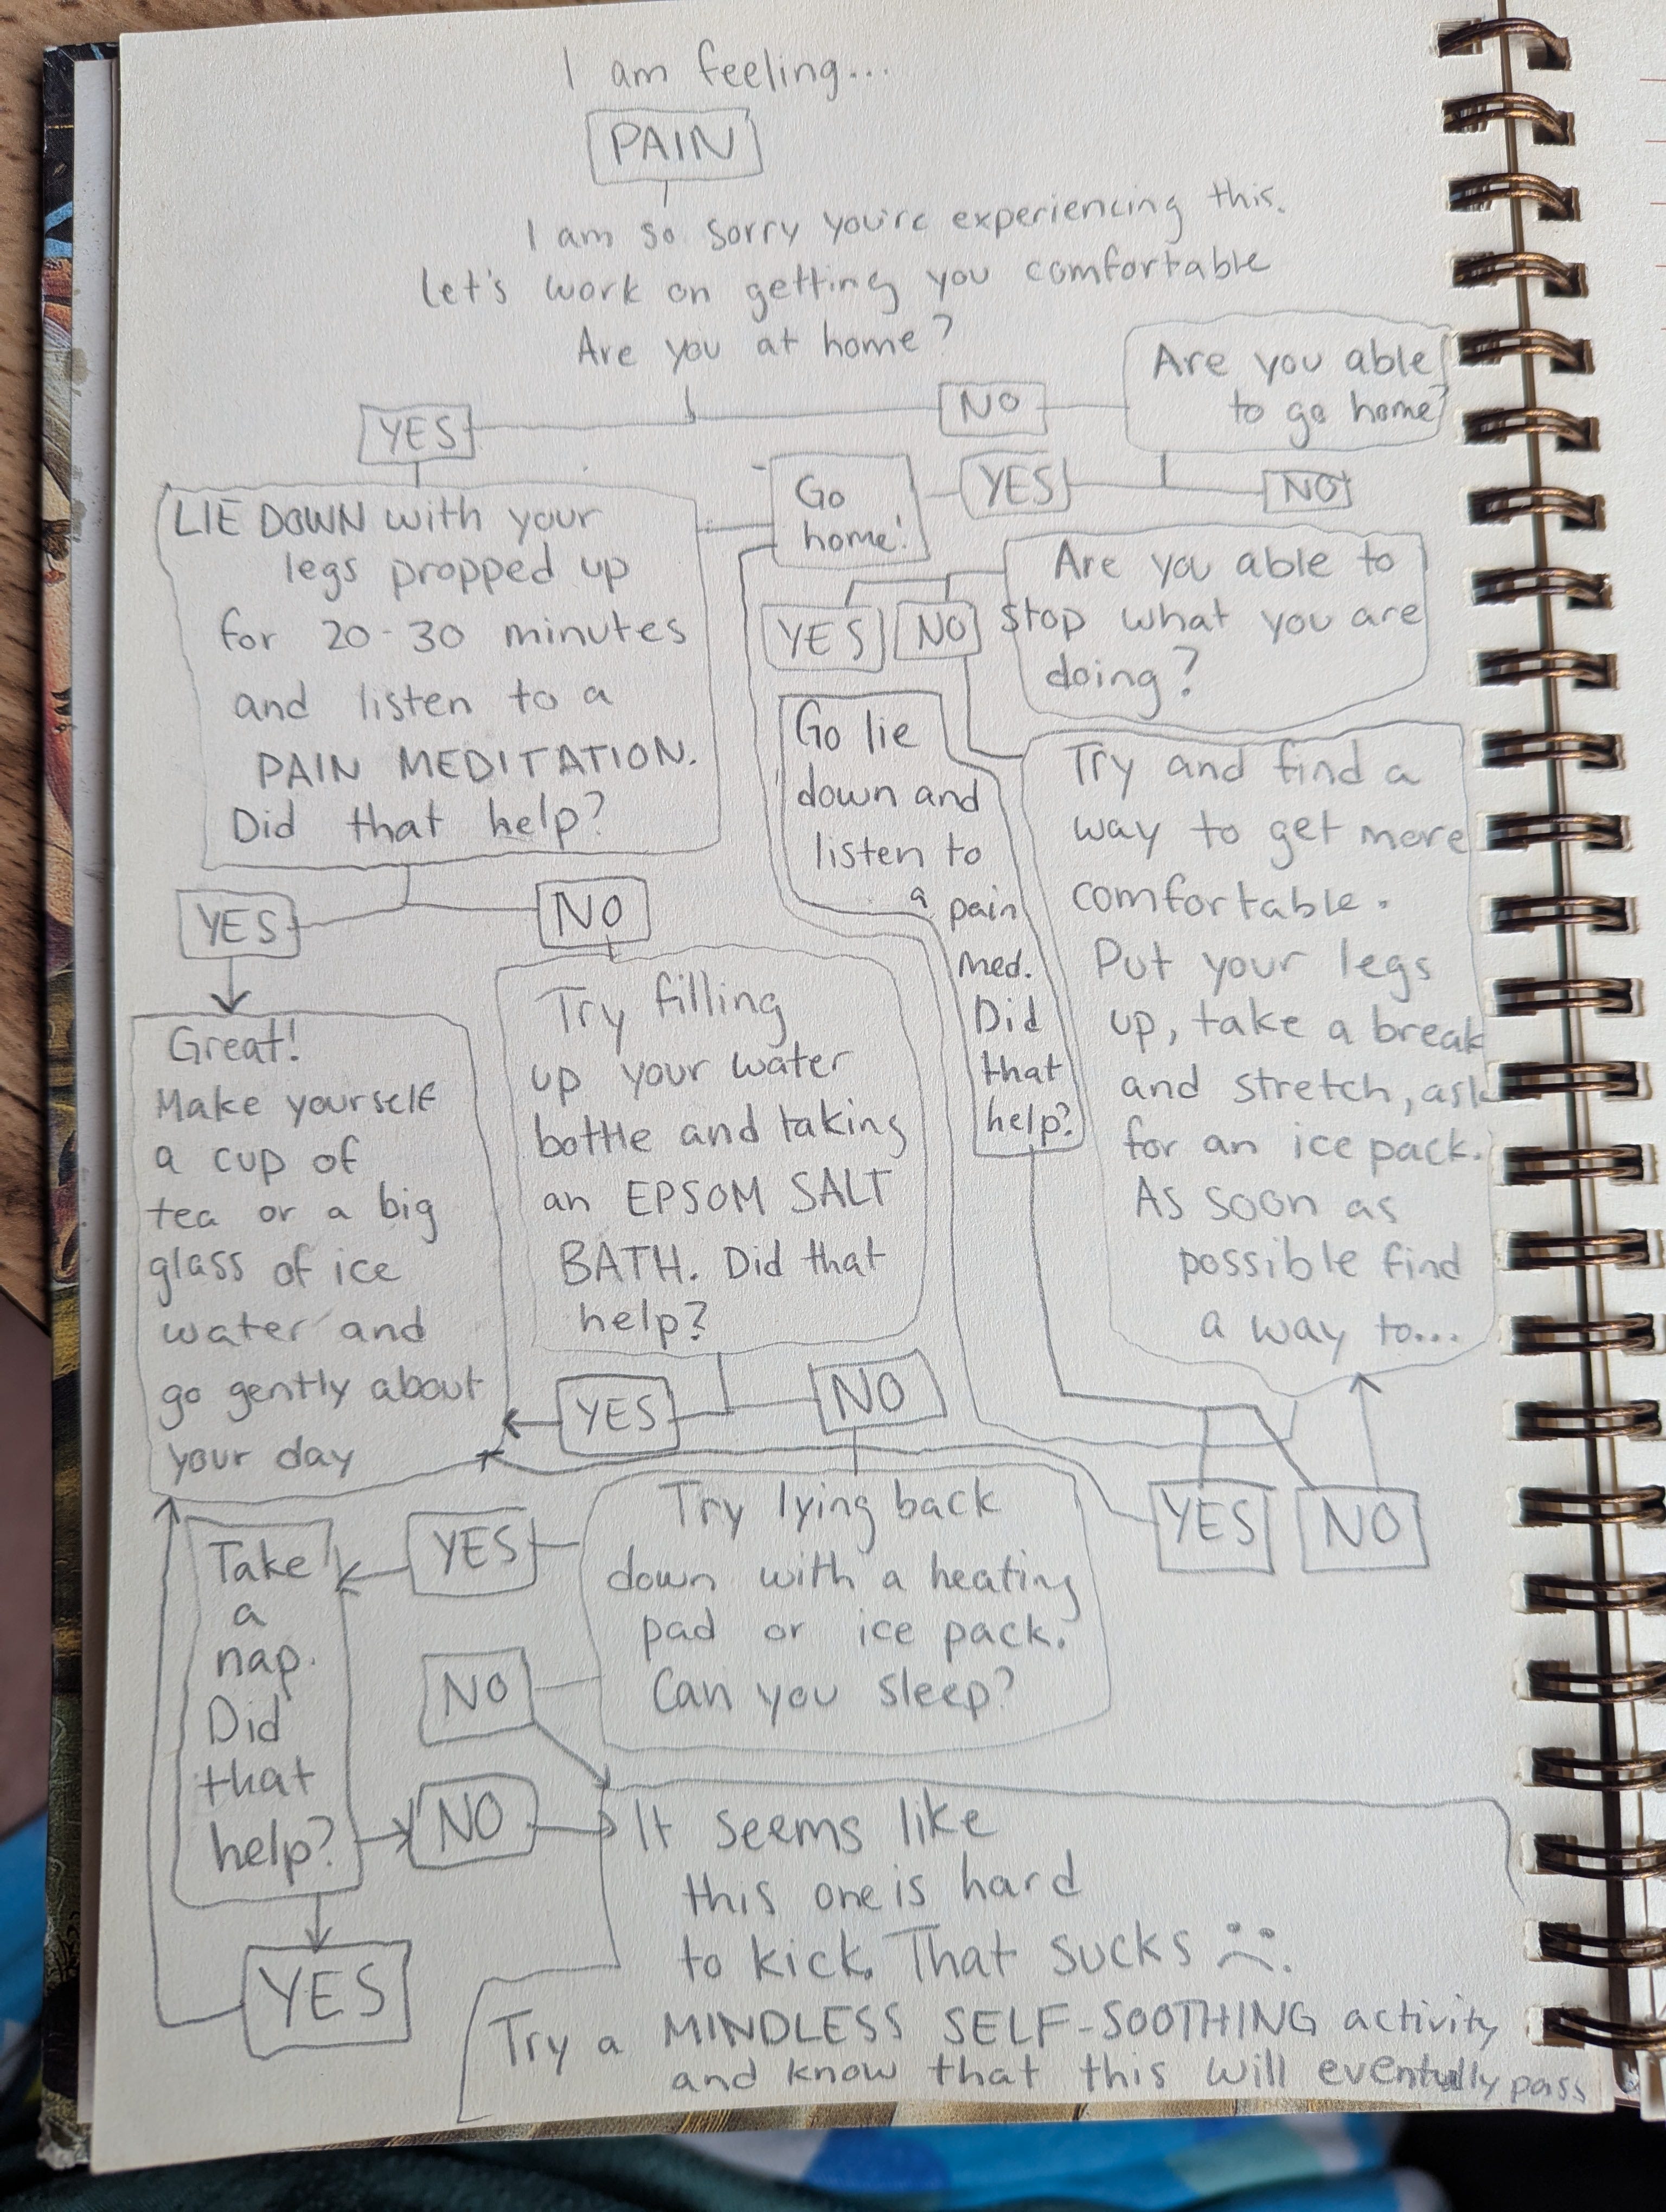 I am feeling...
PAIN
I am so sorry you're experiencing this.
Let's work on getting you comfortable
Are you at home?
YES
NO
Are you able
to go home?
LIE DOWN with your
legs propped up
for 20-30 minutes
and listen to a
PAIN MEDITATION.
Did that help?
Go
home!
YES
NO
Are you able to
stop what you are
doing?
YES
NO
Go lie
down and
listen to
a pain
med.
Did
that
help?
Try and find a
way to get more
comfortable.
Put your legs
up, take a break
and stretch, ask
for an ice pack.
As soon as
possible find
a way to...
YES
NO
Great!
Make yourself
a cup of
tea or a big
glass of ice
water and
go gently about
your day
Try filling
up your water
bottle and taking
an EPSOM SALT
BATH. Did that
help?
YES
NO
YES
NO
Try lying back
down with a heating
pad or ice pack.
Can you sleep?
YES
NO
Take
a
nap.
Did
that
help?
NO
YES
It seems like
this one is hard
to kick. That sucks :(.
Try a MINDLESS SELF-SOOTHING activity
and know that this will eventually pass